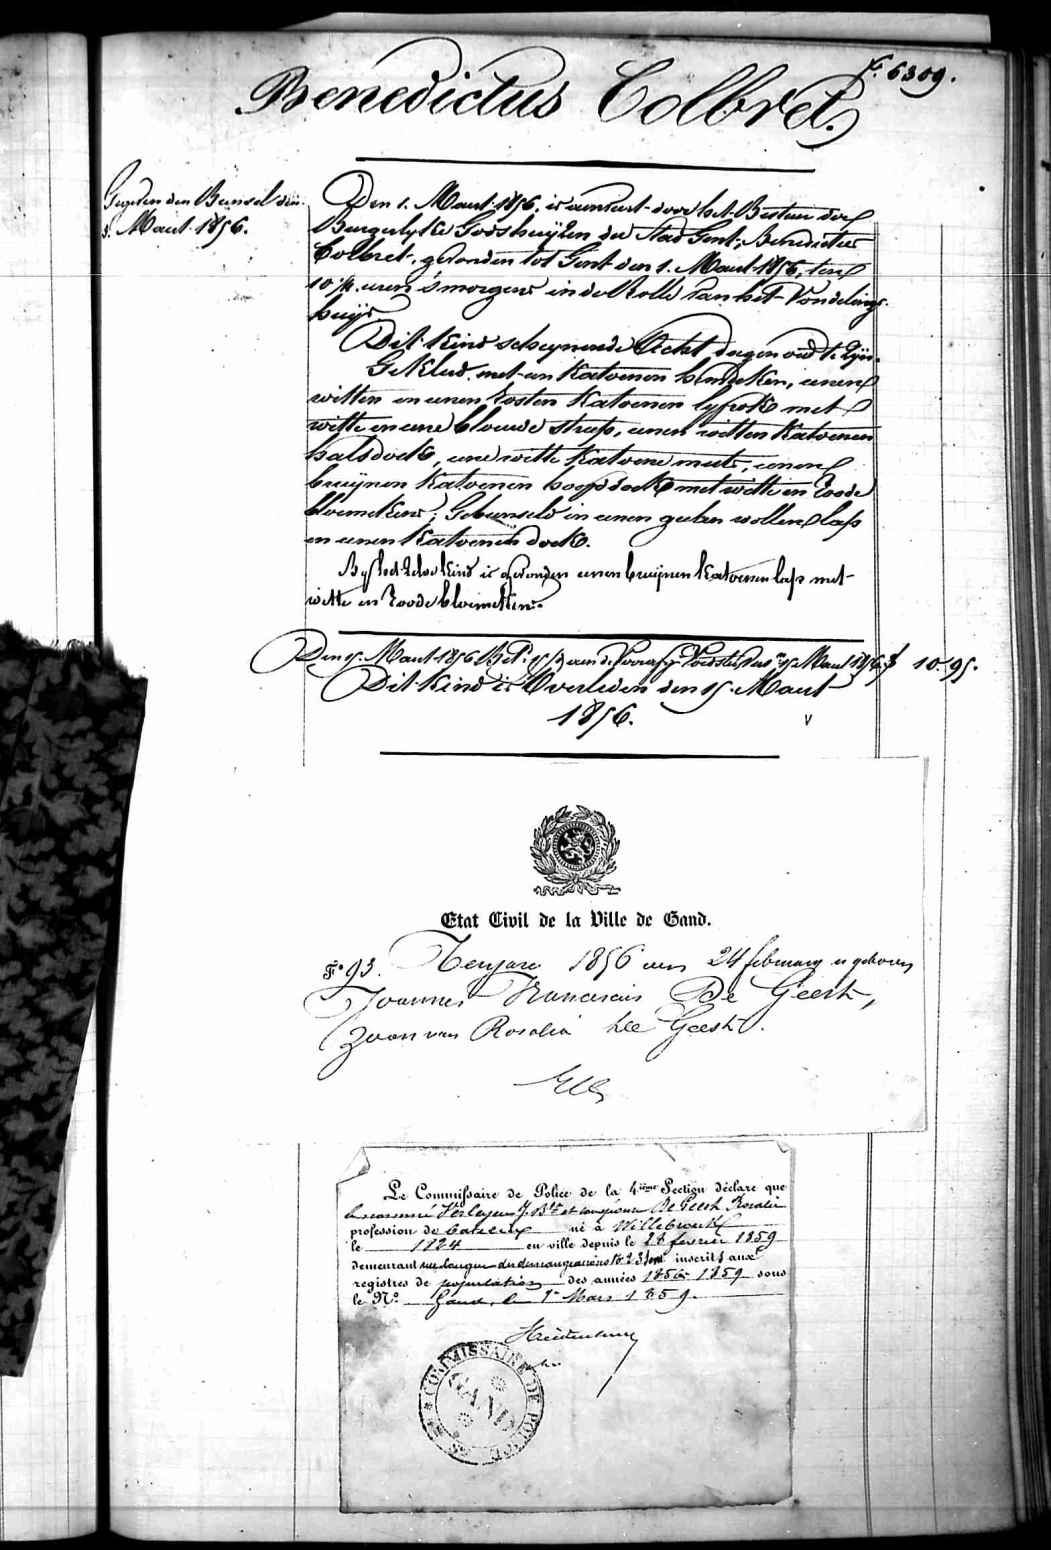 F. 6309.
Benedictus Colbret.
Gegeven den Bunsel den
3. Maart 1856.
Den 1. Maart 1856, is aenveert door het Bestuer der
Burgerlyke Godshuyzen der Stad Gent, Benedictus
Colbret, gevonden tot Gent den 1. Maart 1856, ten
10 ½ uren s'morgens in de Rolle van het Vondeling-
huys.
Dit kind scheynende Acht dagen oud te zyn.
Gekleed met een katoenen hemdeken, eenen
witten en eenen rosten katoenen lyfrok met
witte en eene blauwe streep, eenen witten katoenen
halsdoek, eene witte katoene muts, eenen
bruynen katoenen hoofddoek met witte en roode
bloemekens, Gebunseld in eenen geelen wollen lap
en eenen katoenen doek.
By het zelve kind is gevonden eenen bruynen katoenen lap met
witte en roode bloemekens.
Den 15. Maart 1856 Bet. aen de Voorsz. Voedster 15 Maart 1856 f 10.95.
Dit kind is Overleden den 15. Maart
1856.
Etat Civil de la Ville de Gand.
F° 93. Ten jare 1856 den 24 february is geboren
Joannes Franciscus De Geest,
Zoon van Rosalia De Geest.
Le Commissaire de Police de la 4ième Section déclare que
le nommé J. Bte et son épouse De Geest Rosalie
profession de né à Willebroeck
le 1824 en ville depuis le 28 fevrier 1859
demeurant rue inscrits aux
registres de population des années 1856 1859 sous
le N° Gand, le 1r Mars 1859.
COMMISSAIRE DE POLICE
GAND